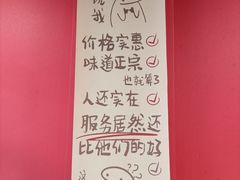 说我
价格实惠
味道正宗
也就算了
人还实在
服务居然还
比他们的好
这